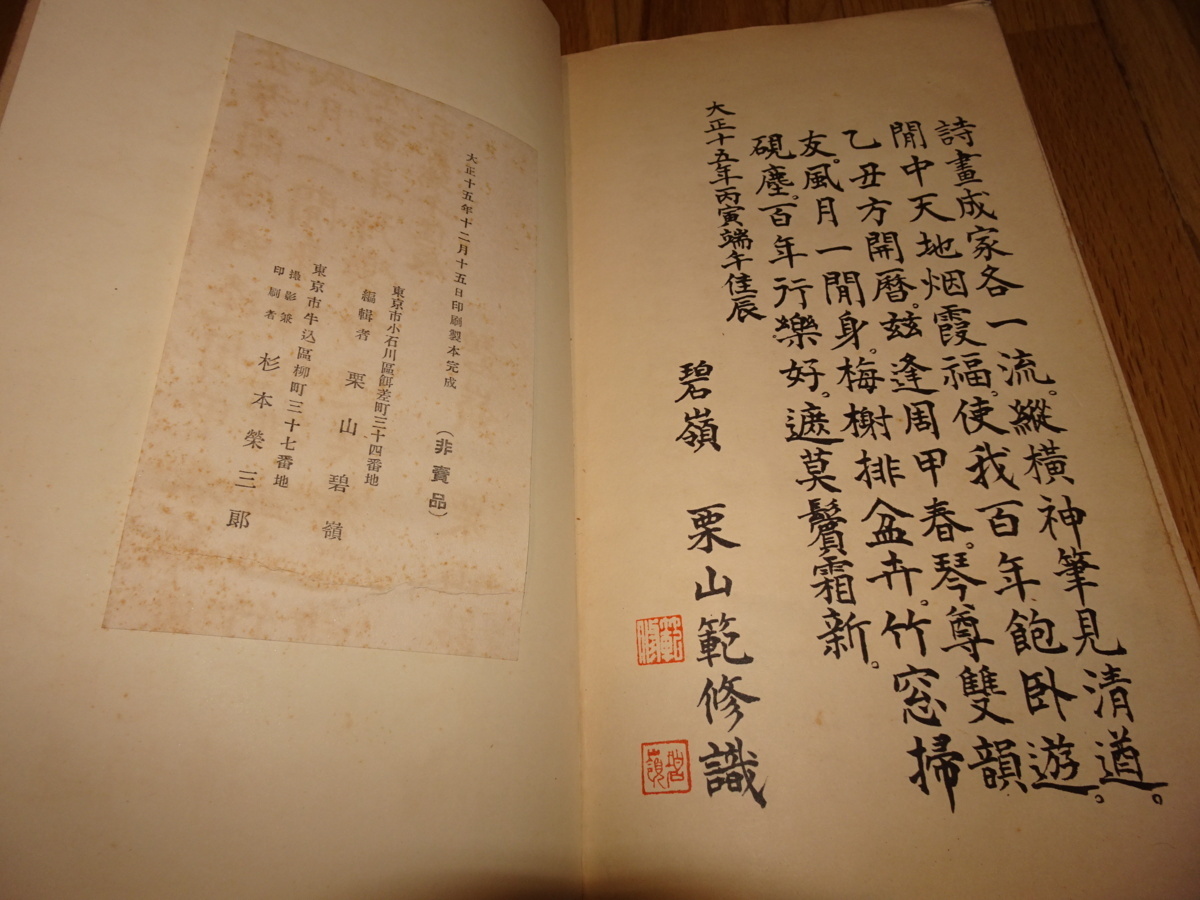 詩畫成家各一流。縱橫神筆見清遒。
閒中天地烟霞福。使我百年飽臥遊。
乙丑方開暦。玆逢周甲春。琴尊雙韻
友。風月一閒身。梅榭排盆卉。竹窓掃
硯塵。百年行樂好。遮莫鬢霜新。
大正十五年丙寅端午佳辰
碧嶺 栗山範修識
範修
碧嶺
大正十五年十二月十五日印刷製本完成
(非賣品)
東京市小石川區餌差町三十四番地
編輯者 栗山碧嶺
東京市牛込區柳町三十七番地
撮影兼
印刷者 杉本榮三郞